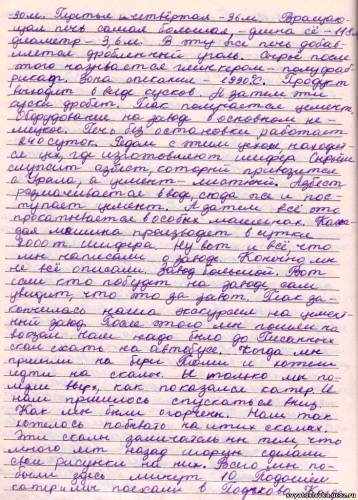 30м. Третья и четвёртая - 36м. Вращаю-
щая печь самая большая, - длина её - 118
диаметр - 3,6м. В эту же печь добав-
ляется дробленный уголь. Сырьё после
этого называется клинкером - полуфаб-
рикат. Зона спекания 1990°С. Продукт
выходит в виде кусков. А затем эти
куски дробят. Так получается цемент.
Оборудование на заводе в основном не-
мецкое. Печь без остановки работает
240 суток. Рядом с этим цехом находит-
ся цех, где изготовляют шифер. Сырьём
служит азбест, который привозится
с Урала, а цемент - местный. Азбест
размачивается в воде, сюда же и пос-
тупает цемент. А затем всё это
прокатывается в особых машинах. Каж-
дая машина производит в сутки
2000 т. шифера. Ну вот и всё, что
мы написали о заводе. Конечно мы
не всё описали. Завод большой. Вот
сам кто побудет на заводе, сам
увидит, что это за завод. Так за-
кончилась наша экскурсия на цемент-
ный завод. После этого мы пошли на
вокзал. Нам надо было до Писанных
скал ехать на автобусе. Когда мы
пришли на берег Томи и хотели
идти на скалы. И только мы по-
шли вверх, как показался катер. И
нам пришлось спускаться вниз.
Как мы были огорчены. Нам так
хотелось побывать на этих скалах.
Эти скалы замечательны тем что
много лет назад шорцы сделали
свои рисунки на них. Всего мы по-
были здесь минут 10. Подошёл
катер и мы поехали в Подъяково. К
svyatoslavka.ucoz.ru